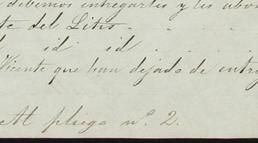 debemos entregarles y les abo
te del Litis . . . .
id id . . . .
Vicente que han dejado de entre
Al pliego nº. 2.